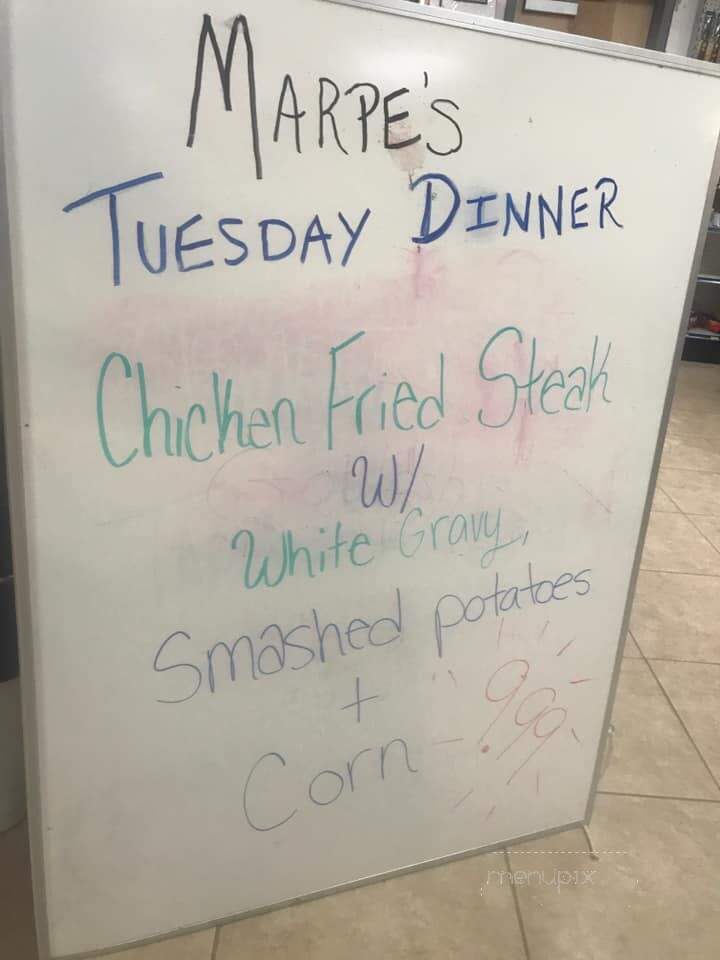 MARPE'S
TUESDAY DINNER
Chicken Fried Steak
W/
White Gravy,
Smashed potatoes
+
Corn - 9.99
menupix